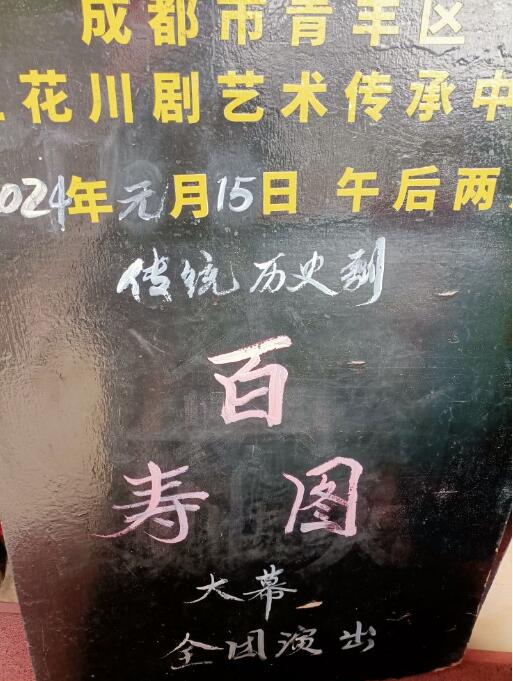 成都市青羊区
花川剧艺术传承中
2024年元月15日 午后两
传统历史剧
百
寿图
大幕
全团演出